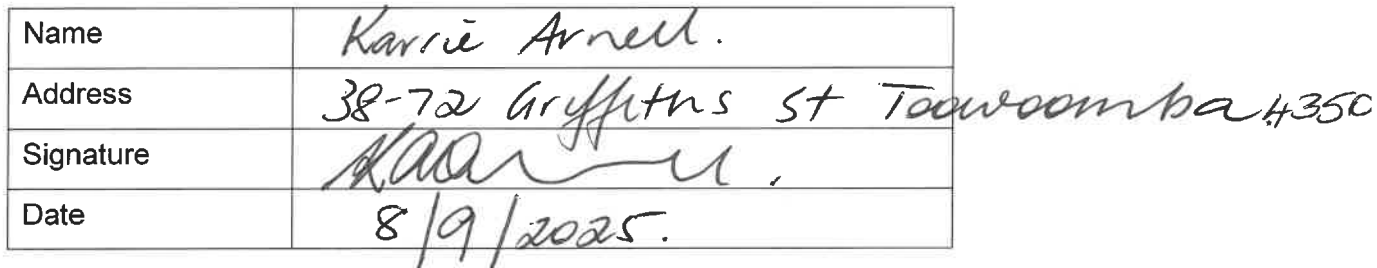 Name Karrie Arnell.
Address 38-72 Griffiths St Toowoomba 4350
Signature
Date 8/9/2025.